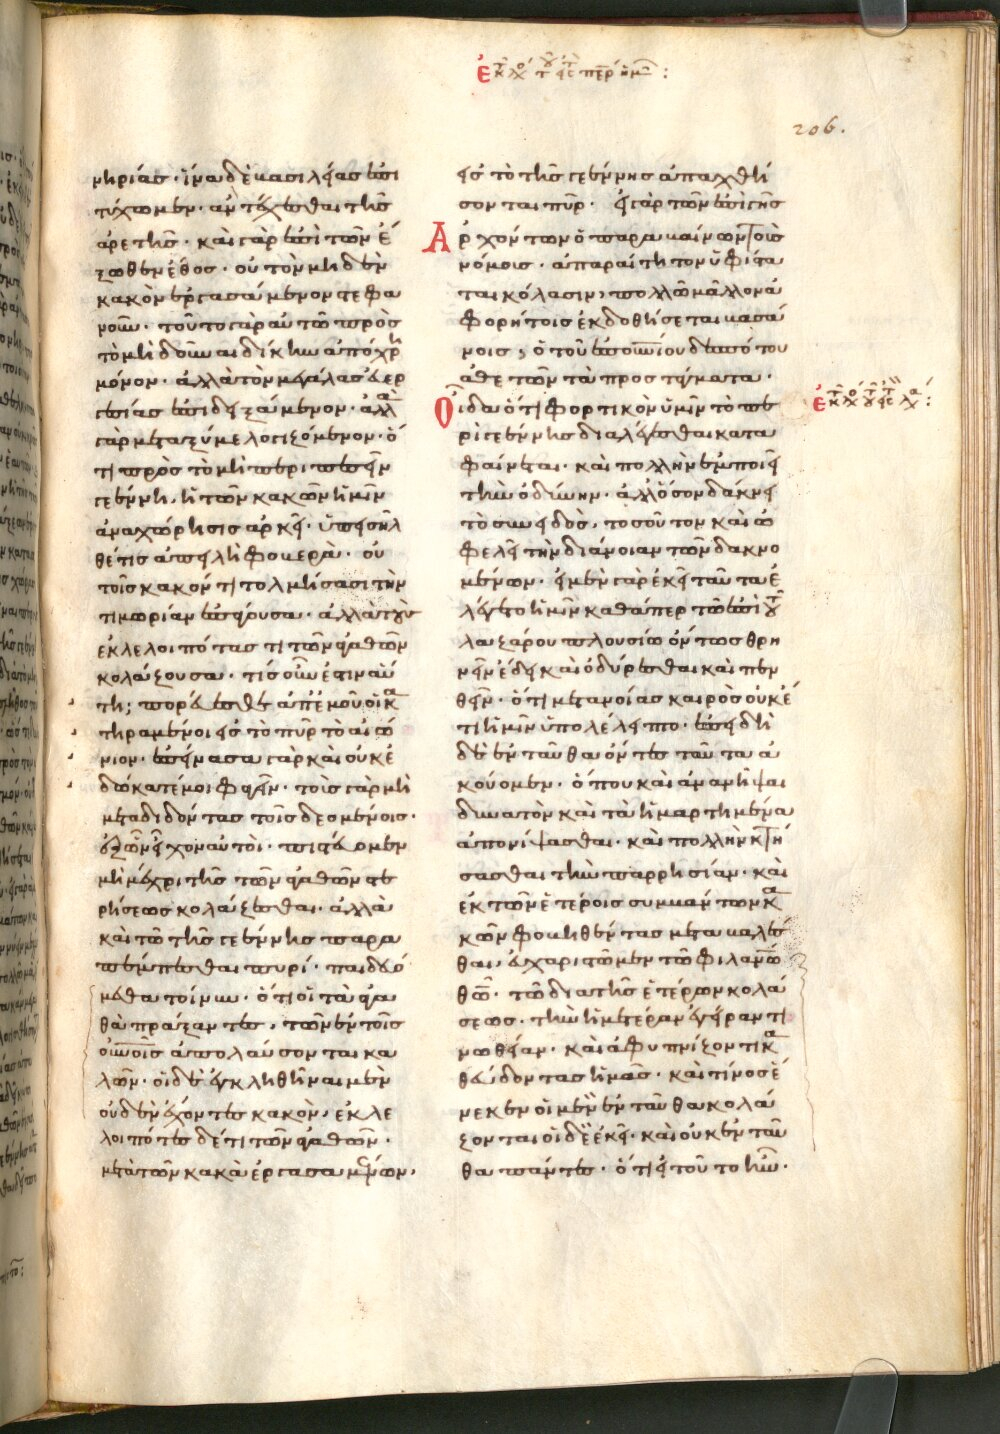 νηρίας· ἵνα δὲ βασιλείας ἐπι
τύχωμεν· ἀντέχεσθαι τῆς
ἀρετῆς· καὶ γὰρ ἐπὶ τῶν ἔ
ξωθεν ἔθος· οὐ τὸν μηδὲν
κακὸν ἐργασάμενον στεφα
νοῦν· τοῦτο γὰρ αὐτῶ πρὸς
τὸ μὴ δοῦναι δίκην ἀπόχρη
μόνον· ἀλλὰ τὸν μεγάλας εὐερ
γεσίας ἐπιδειξάμενον· ἀλλὰ
γὰρ μεταξύ με λογιζόμενον· ὅ
τι πρὸς τὸ μὴ περιπεσεῖν
γεέννη, ἡ τῶν κακῶν ἡμῖν
ἀναχώρησις ἀρκεῖ· ὑπεισῆλ
θέ τις ἀπειλὴ φοβερὰ· οὐ
τοῖς κακόν τι τολμήσασι τὴν
τιμωρίαν ἐπάγουσα· ἀλλὰ τοὺς
ἐκλελοιπότας τι τῶν ἀγαθῶν
κολάζουσα· τίς οὖν ἐστιν αὕ
τη; πορεύεσθε ἀπ' ἐμοῦ οἱ κα
τηραμένοι εἰς τὸ πῦρ τὸ αἰώ
νιον· ἐπείνασα γὰρ καὶ οὐκ ἐ
δώκατέ μοι φαγεῖν· τοῖς γὰρ μὴ
μεταδιδόντας τοῖς δεομένοις·
ἐξ ὧν εἶχον αὐτοὶ· πιστεύομεν
μὴ μέχρι τῆς τῶν ἀγαθῶν στε
ρήσεως κολάζεσθαι· ἀλλὰ
καὶ τῶ τῆς γεέννης παρα
πέμπεσθαι πυρί· παιδευό
μεθα τοίνυν· ὅτι οἱ τὰ ἀγα
θὰ πράξαντες, τῶν ἐν τοῖς
οὐνοῖς ἀπολαύσονται κα
λῶν· οἱ δὲ ἐγκληθῆναι μὲν
οὐδὲν ἔχοντες κακὸν, ἐκλε
λοιπότες δέ τι τῶν ἀγαθῶν·
μετὰ τῶν κακὰ ἐργασαμένων,
206.
εἰς τὸ τῆς γεέννης ἀπαχθή
σονται πῦρ· εἰ γὰρ τῶν ἐπὶ γῆς
Ἀρχόντων ὁ παραβαίνων τοῖς
νόμοις· ἀπαραίτητον ὑφίστα
ται κόλασιν, πολλῶ μᾶλλον ἀ
φορήτοις ἐκδοθήσεται βασά
νοις, ὁ τοῦ ἐπουνίου δεσπότου
ἀθετῶν τὰ προστάγματα·
Οἶδα ὅτι φορτικὸν ὑμῖν τὸ πε
ρὶ γεέννης διαλέγεσθαι κατα
φαίνεται· καὶ πολλὴν ἐμποιεῖ
τὴν ὀδύνην· ἀλλ' ὅσον δάκνει
τὸ συνειδὸς, τοσοῦτον καὶ ὠ
φελεῖ τὴν διάνοιαν τῶν δακνο
μένων· εἰ μὲν γὰρ ἐκεῖ ταῦτα ἐ
λέγετο ἡμῖν καθάπερ τῶ ἐπὶ τοῦ
λαζάρου πλουσίω ὄντως θρη
νεῖν ἔδει καὶ ὀδύρεσθαι καὶ πεν
θεῖν· ὅτι μετανοίας καιρὸς οὐκ ἔ
τι ἡμῖν ὑπολέλειπτο· ἐπειδὴ
δὲ ἐνταῦθα ὄντες ταῦτα ἀ
κούομεν· ὅπου καὶ ἀνανῆψαι
δυνατὸν καὶ τὰ ἡμαρτημένα
ἀπονίψασθαι· καὶ πολλὴν κτή
σασθαι τὴν παρρησίαν· καὶ
ἐκ τῶν ἑτέροις συμβάντων κα
κῶν φοβηθέντας μεταβαλέσ
θαι, εὐχαριστῶμεν τῶ φιλανω
θω· τῶ διὰ τῆς ἑτέρων κολά
σεως· τὴν ἡμετέραν ἐγείραντι
νωθείαν· καὶ ἀφυπνίζοντι κα
θεύδοντας ἡμᾶς· καὶ τίνος ἕ
νεκεν οἱ μὲν ἐνταῦθα κολά
ζονται οἱ δὲ ἐκεῖ· καὶ οὐκ ἐνταῦ
θα πάντες· ὅτι εἰ τοῦτο ἦν·